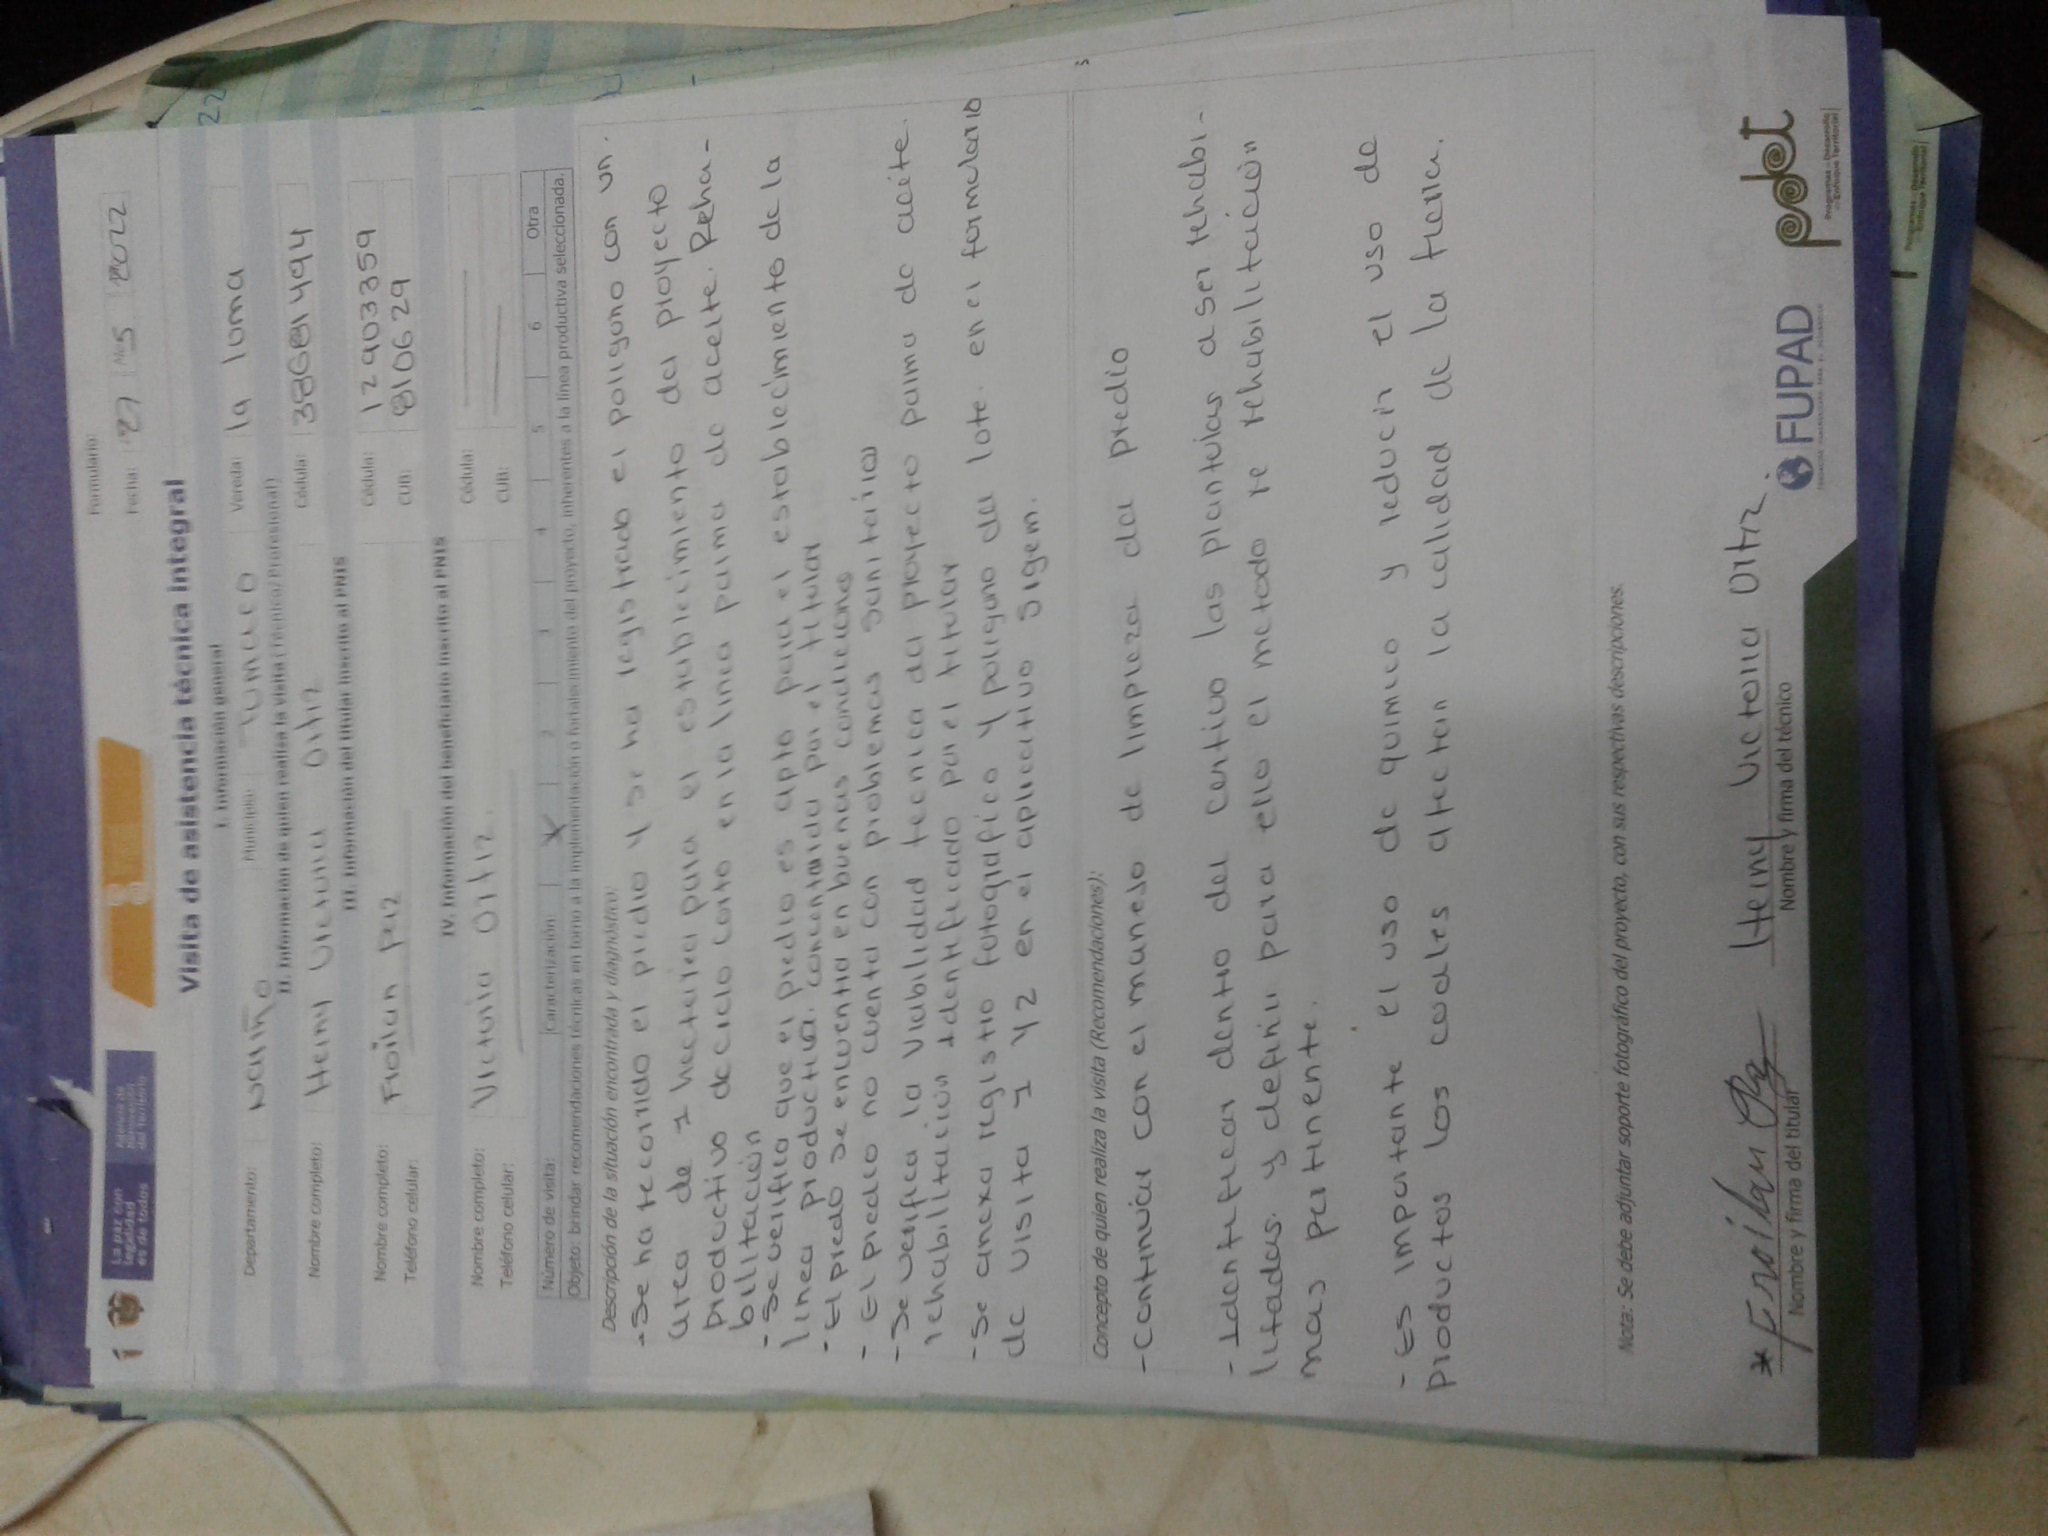 La paz con
legalidad
es de todos
Agencia de
Renovación
del Territorio
Formulario:
Fecha: 27 Mes 5 2022
Visita de asistencia técnica integral
I. Información general
Departamento: Nariño Municipio: Tumaco Vereda: la loma
II. Información de quien realiza la visita (Técnico/Profesional)
Nombre completo: Heiny Victoria Ortiz Cédula: 38681494
III. Información del titular inscrito al PNIS
Nombre completo: Froilan Paz Cédula: 12903359
Teléfono celular: CUB: 810629
IV. Información del beneficiario inscrito al PNIS
Nombre completo: Victoria Ortiz Cédula:
Teléfono celular: CUB:
Número de visita: Caracterización: X 1 2 3 4 5 6 Otra
Objeto: brindar recomendaciones técnicas en torno a la implementación o fortalecimiento del proyecto, inherentes a la línea productiva seleccionada.
Descripción de la situación encontrada y diagnóstico:
- Se ha recorrido el predio y se ha registrado el poligono con un
area de 1 hectarea para el establecimiento del proyecto
productivo de ciclo corto en la linea palma de aceite. Reha-
bilitación
- Se verifica que el predio es apto para el establecimiento de la
linea productiva. concertada por el titular
- El predio se encuentra en buenas condiciones
- El predio no cuenta con problemas sanitarios
- Se verifica la viabilidad tecnica del proyecto palma de aceite.
rehabilitación identificado por el titular
- Se anexa registro fotografico y poligono del lote. en el formulario
de visita 1 y 2 en el aplicativo sigem.
Concepto de quien realiza la visita (Recomendaciones):
- Continuar con el manejo de limpieza del predio
- Identificar dentro del cultivo las plantulas a ser rehabi-
litadas. y definir para ello el metodo re rehabilitación
mas pertinente.
- Es importante el uso de quimico y reducir el uso de
productos los cuales afectan la calidad de la tierra.
Nota: Se debe adjuntar soporte fotográfico del proyecto, con sus respectivas descripciones.
* Froilan Paz Heiny Victoria Ortiz.
Nombre y firma del titular Nombre y firma del técnico
FUPAD
pdet
Programas de Desarrollo
con Enfoque Territorial